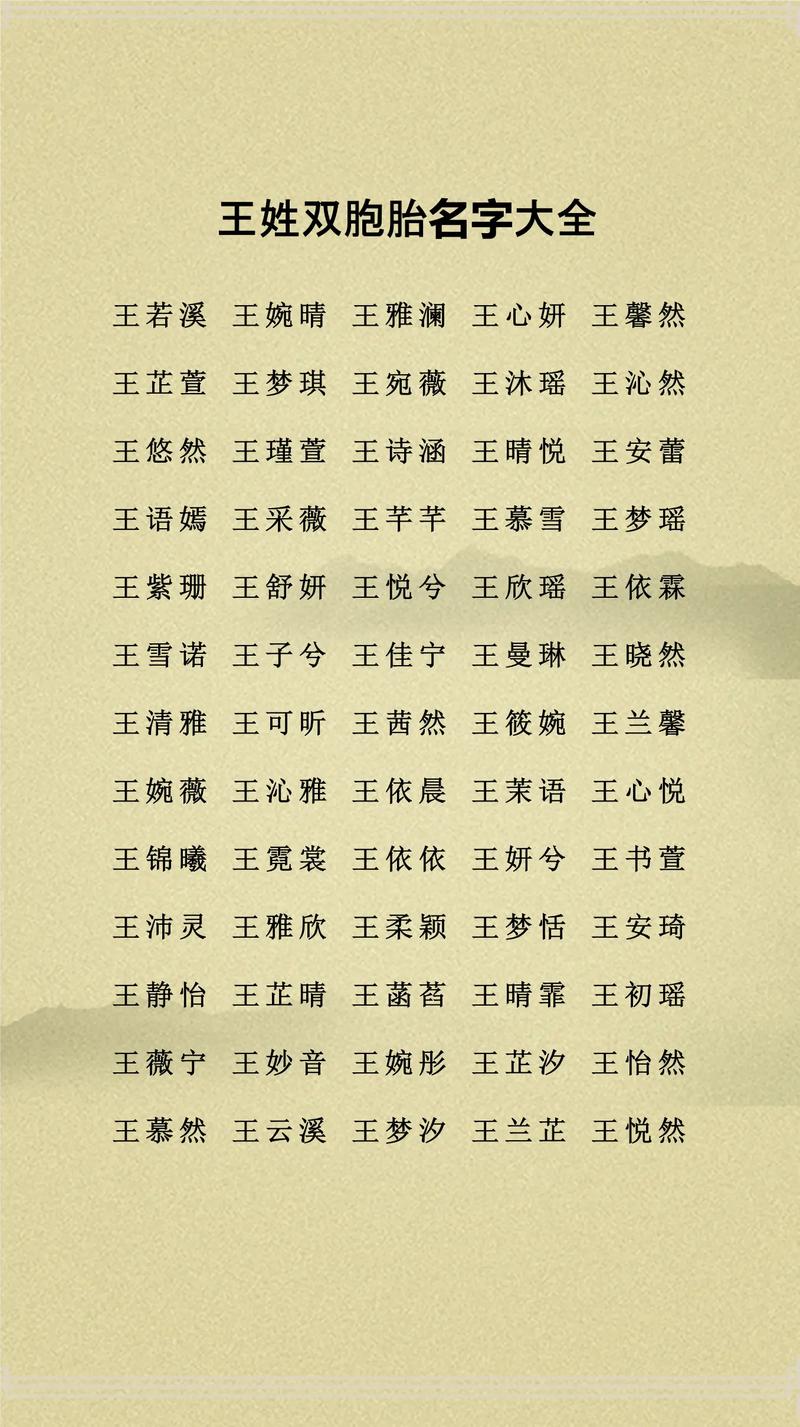 王姓双胞胎名字大全
王若溪 王婉晴 王雅澜 王心妍 王馨然
王芷萱 王梦琪 王宛薇 王沐瑶 王沁然
王悠然 王瑾萱 王诗涵 王晴悦 王安蕾
王语嫣 王采薇 王芊芊 王慕雪 王梦瑶
王紫珊 王舒妍 王悦兮 王欣瑶 王依霖
王雪诺 王子兮 王佳宁 王曼琳 王晓然
王清雅 王可昕 王茜然 王筱婉 王兰馨
王婉薇 王沁雅 王依晨 王茉语 王心悦
王锦曦 王霓裳 王依依 王妍兮 王书萱
王沛灵 王雅欣 王柔颖 王梦恬 王安琦
王静怡 王芷晴 王菡萏 王晴霏 王初瑶
王薇宁 王妙音 王婉彤 王芷汐 王怡然
王慕然 王云溪 王梦汐 王兰芷 王悦然